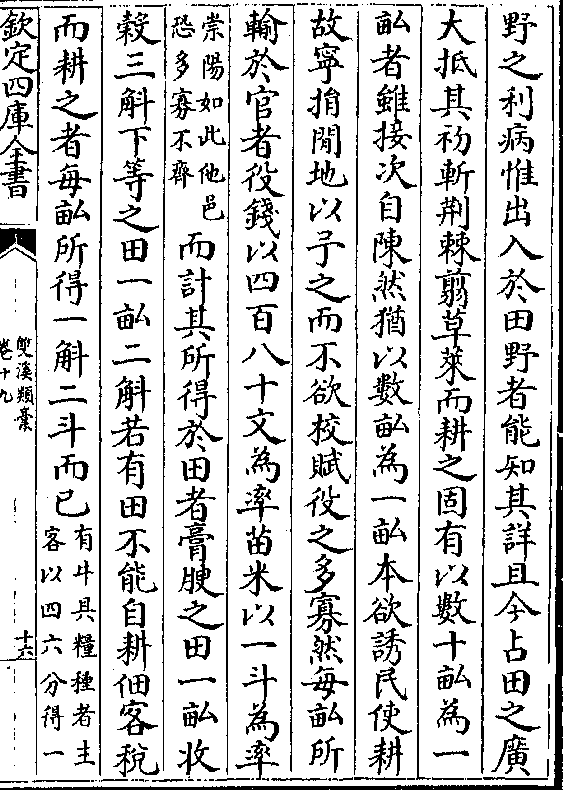 野之利病惟出入於田野者能知其詳且今占田之廣
大抵其初斬荆棘翦草萊而耕之固有以數十畝為一
畝者雖接次自陳然猶以數畝為一畝本欲誘民使耕
故寧捐閒地以予之而不欲校賦役之多寡然每畝所
輸於官者役錢以四百八十文為率苗米以一斗為率
崇陽如此他邑
恐多寡不齊
而計其所得於田者膏腴之田一畝收
穀三斛下等之田一畝二斛若有田不能自耕佃客稅
而耕之者每畝所得一斛二斗而已
有牛具糧種者主
客以四六分得一
欽定四庫全書
雙溪類稾
卷十九
十六